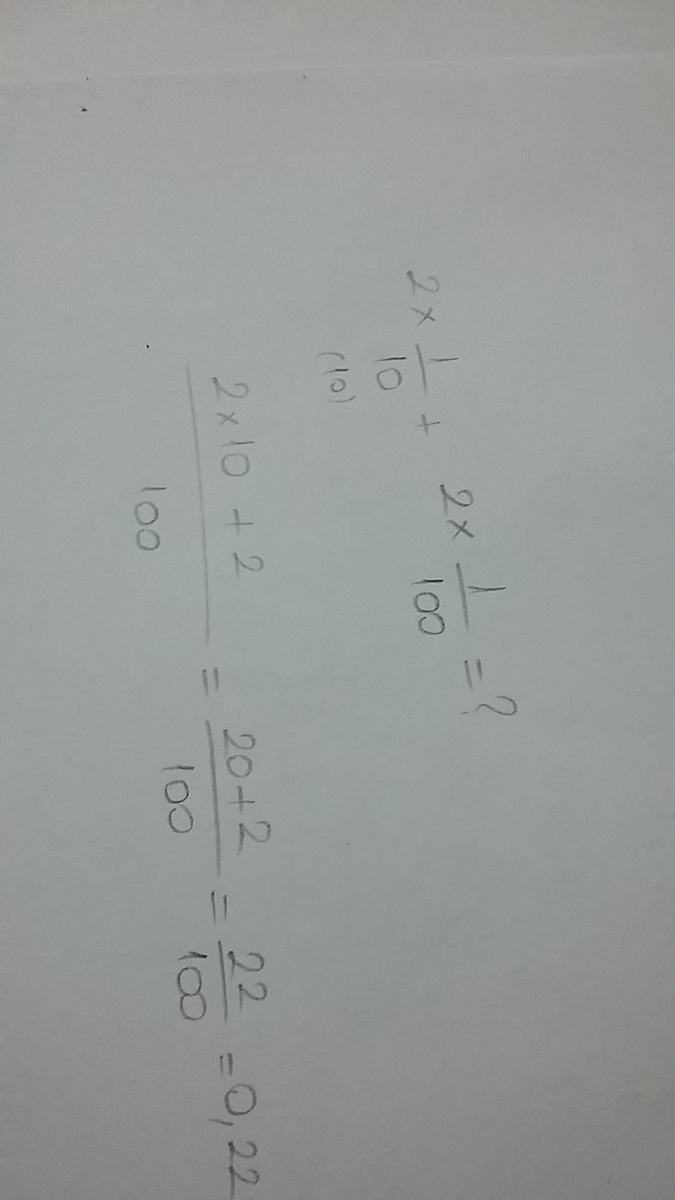 2 × 1/10 + 2 × 1/100 = ?
(10)
2 × 10 + 2 / 100 = 20 + 2 / 100 = 22/100 = 0,22